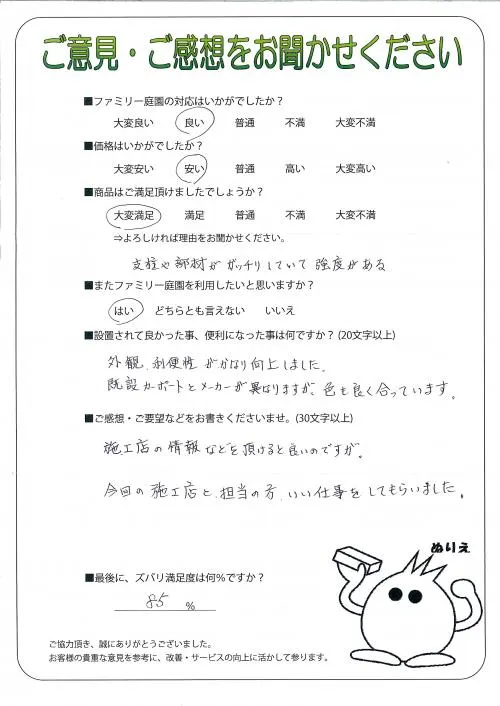 ご意見・ご感想をお聞かせください
■ファミリー庭園の対応はいかがでしたか？
大変良い 良い 普通 不満 大変不満
■価格はいかがでしたか？
大変安い 安い 普通 高い 大変高い
■商品はご満足頂けましたでしょうか？
大変満足 満足 普通 不満 大変不満
⇒よろしければ理由をお聞かせください。
支柱や部材がガッチリしていて強度がある
■またファミリー庭園を利用したいと思いますか？
はい どちらとも言えない いいえ
■設置されて良かった事、便利になった事は何ですか？(20文字以上)
外観、利便性がかなり向上しました。
既設カーポートとメーカーが異なりますが、色も良く合っています。
■ご感想・ご要望などをお書きくださいませ。(30文字以上)
施工店の情報などを頂けると良いのですが。
今回の施工店と、担当の方、いい仕事をしてもらいました。
ぬりえ
■最後に、ズバリ満足度は何%ですか？
85 %
ご協力頂き、誠にありがとうございました。
お客様の貴重な意見を参考に、改善・サービスの向上に活かして参ります。